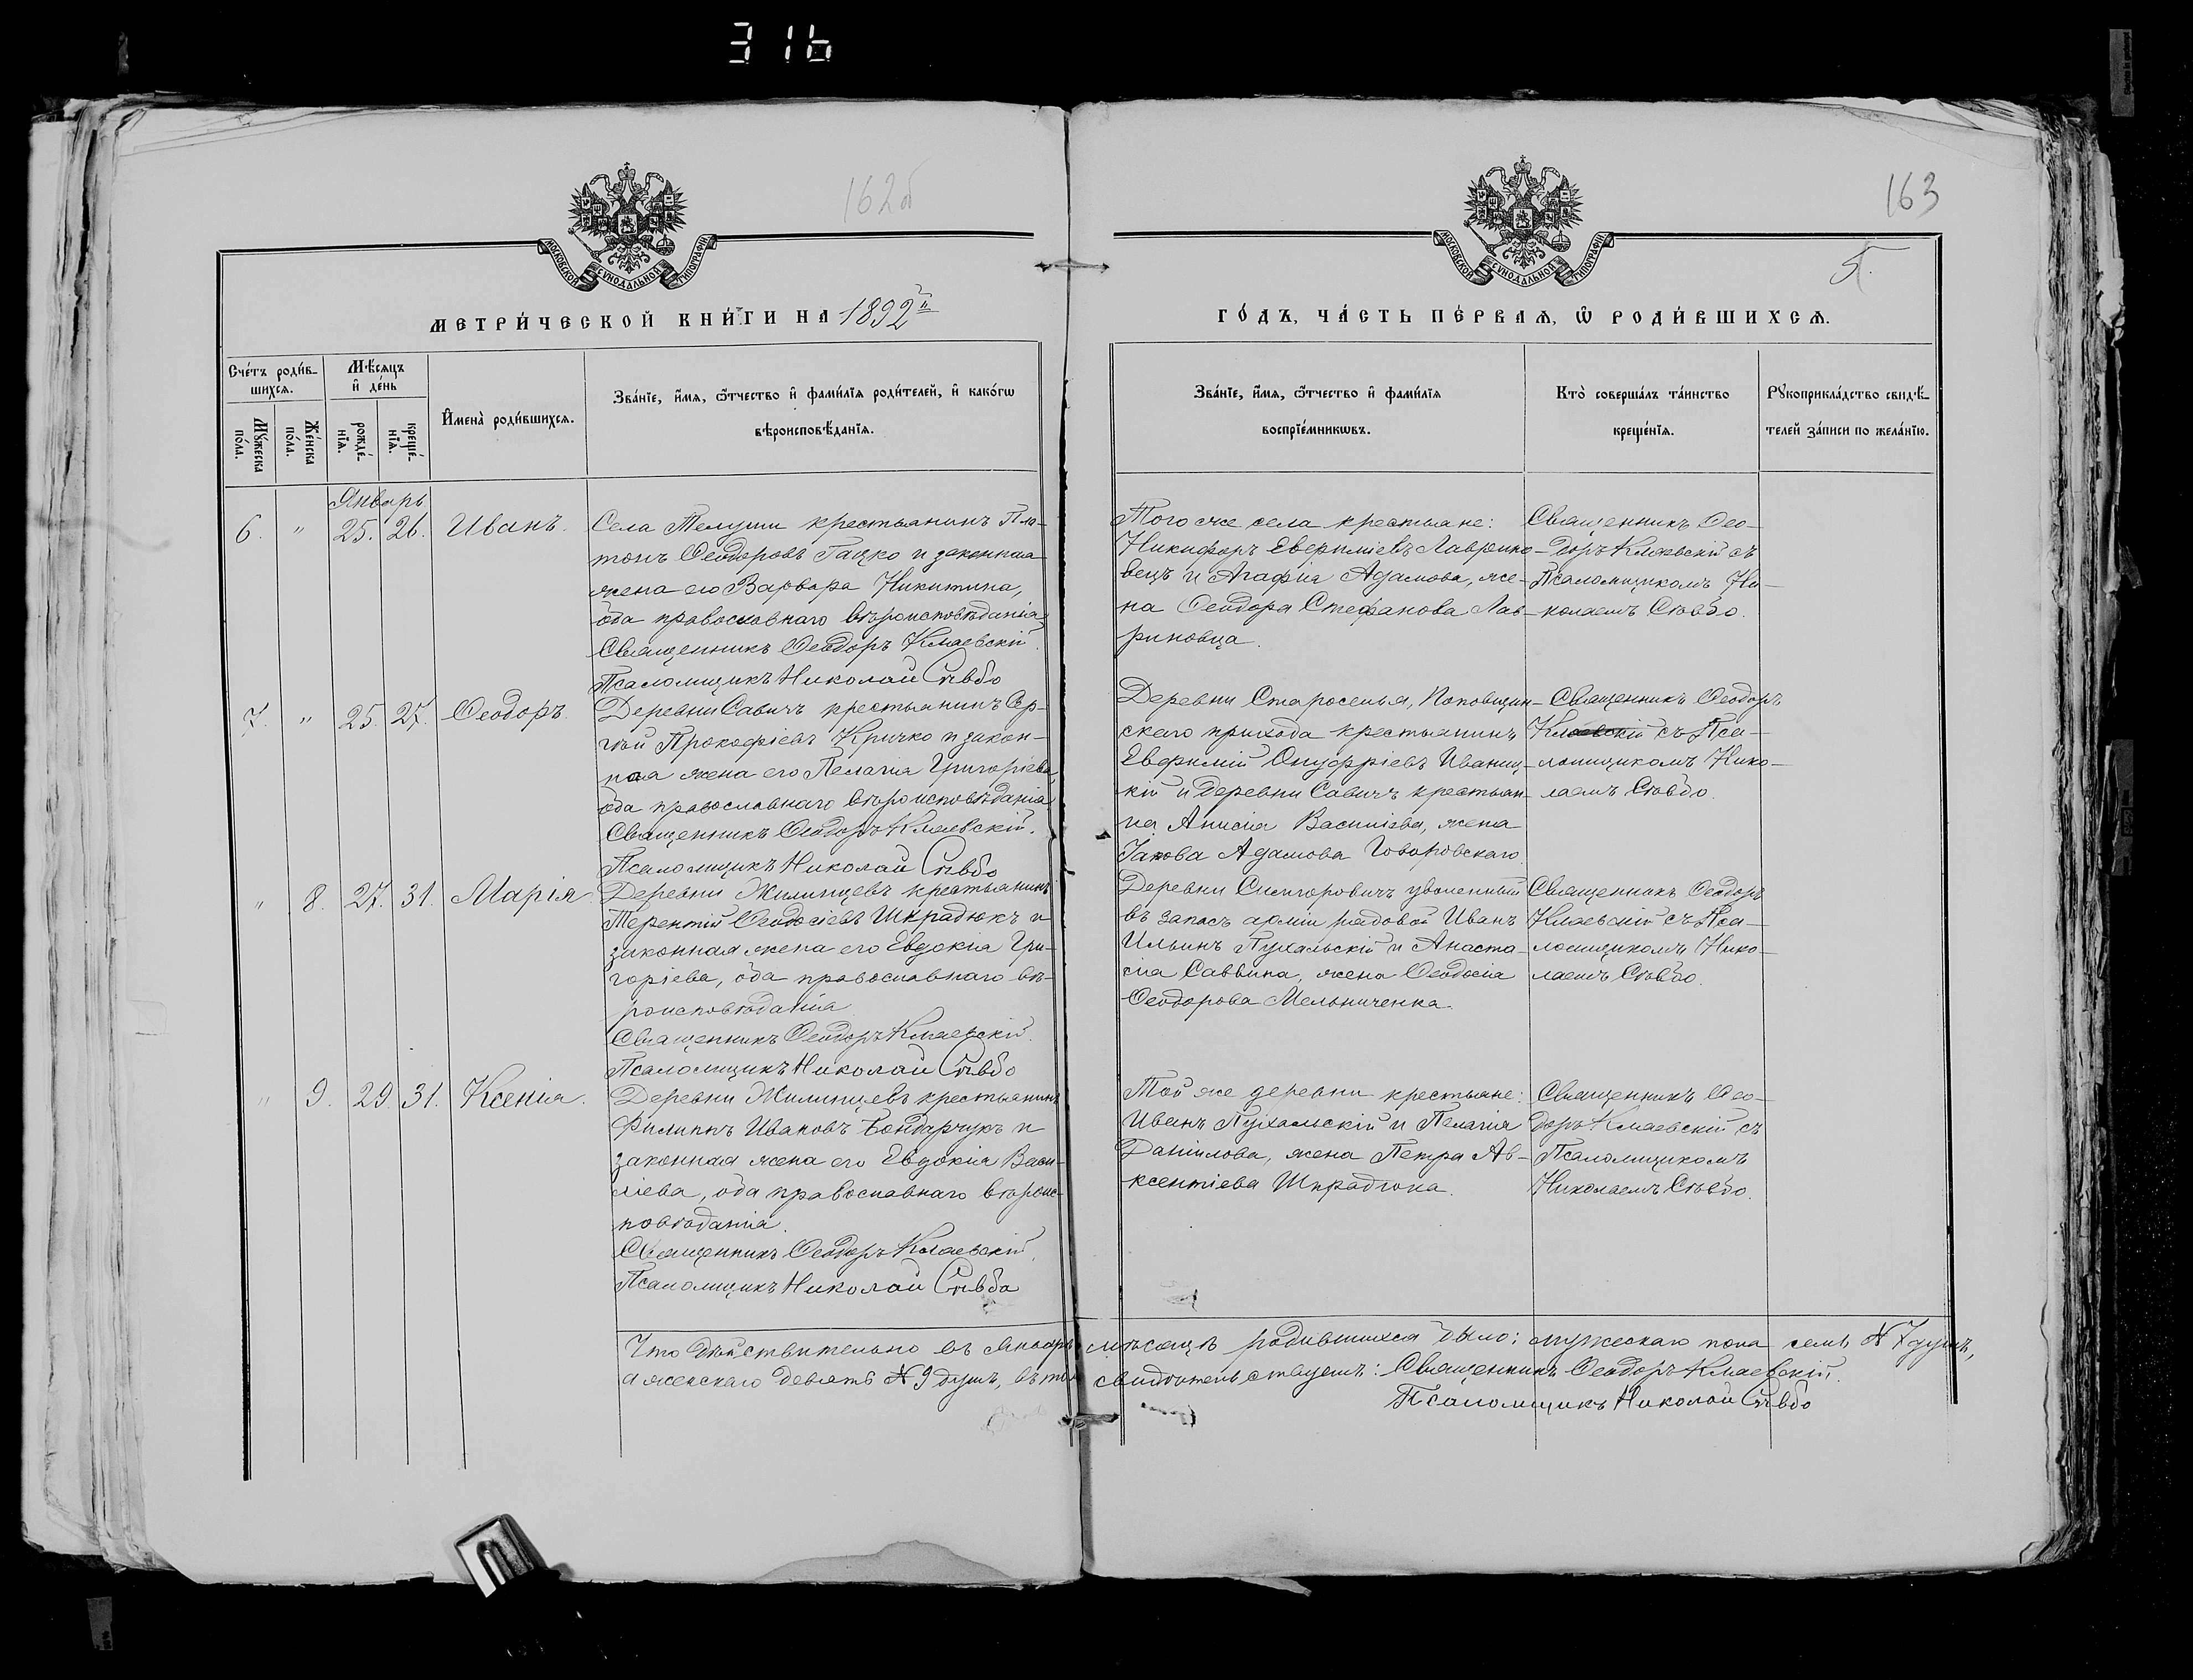 316
162б
163
5.
МОСКОВСКОЙ СѴНОДАЛЬНОЙ ТИПОГРАФІИ
МОСКОВСКОЙ СѴНОДАЛЬНОЙ ТИПОГРАФІИ
МЕТРИ́ЧЕСКОЙ КНИ́ГИ НА 1892й
ГО́ДЪ, ЧА́СТЬ ПЕ́РВАѦ, Ѿ РОДИ́ВШИХСѦ.
Сче́тъ роди́в-
шихсѧ.
Мꙋ́жеска
по́ла.
Же́нска
по́ла.
Мѣ́сѧцъ
и҆ де́нь
рожде́-
нїѧ.
креще́-
нїѧ.
И҆мена̀ роди́вшихсѧ.
Зва́нїе, и҆́мѧ, ѻ҆́тчество и҆ фами́лїѧ роди́телей, и҆ како́гѡ
вѣроисповѣ́данїѧ.
Зва́нїе, и҆́мѧ, ѻ҆́тчество и҆ фами́лїѧ
воспрїе́мникѡвъ.
Кто̀ соверша́лъ та́инство
креще́нїѧ.
Рꙋкоприкла́дство свидѣ́-
телей за́писи по жела́нїю.
Январь
6. " 25. 26. Иванъ.
Села Телущи крестьянинъ Пла-
тонъ Ѳеодоровъ Гацко и законная
жена его Варвара Никитина,
оба православнаго вѣроисповѣданія
Священникъ Ѳеодоръ Клаевскій
Псаломщикъ Николай Сѣвбо
Того же села крестьяне:
Никифоръ Евфиміевъ Лаврино-
вецъ и Агафія Адамова, же-
на Ѳеодора Стефанова Лав-
риновца.
Священникъ Ѳео-
доръ Клаевскій съ
Псаломщикомъ Ни-
колаемъ Сѣвбо.
7. " 25. 27. Ѳеодоръ.
Деревни Савичъ крестьянинъ Сер-
гій Прокофіевъ Кричко и закон-
ная жена его Пелагія Григоріева,
оба православнаго вѣроисповѣданія
Священникъ Ѳеодоръ Клаевскій.
Псаломщикъ Николай Сѣвбо
Деревни Староселья, Поповщин-
скаго прихода крестьянинъ
Евфимій Онуфріевъ Иваниц-
кій и деревни Савичъ крестьян-
ка Анисія Василіева, жена
Іакова Адамова Говоровскаго
Священникъ Ѳеодоръ
Клаевскій съ Пса-
ломщикомъ Нико-
лаемъ Сѣвбо.
" 8. 27. 31. Марія
Деревни Жилинцевъ крестьянинъ
Терентій Ѳеодосіевъ Шкрадюкъ и
законная жена его Евдокія Гри-
горіева, оба православнаго вѣ-
роисповѣданія
Священникъ Ѳеодоръ Клаевскій.
Псаломщикъ Николай Сѣвбо
Деревни Снигоровичъ уволенный
въ запасъ арміи рядовой Иванъ
Ильинъ Пухальскій и Анаста-
сія Саввина, жена Ѳеодосія
Ѳеодорова Мельниченка.
Священникъ Ѳеодоръ
Клаевскій съ Пса-
ломщикомъ Нико-
лаемъ Сѣвбо.
" 9. 29. 31. Ксенія.
Деревни Жилинцевъ крестьянинъ
Филиппъ Ивановъ Бондарчукъ и
законная жена его Евдокія Васи-
ліева, оба православнаго вѣроис-
повѣданія.
Священникъ Ѳеодоръ Клаевскій.
Псаломщикъ Николай Сѣвбо
Той же деревни крестьяне:
Иванъ Пухальскій и Пелагія
Даніилова, жена Петра Ав-
ксентіева Шкрадюка.
Священникъ Ѳео-
доръ Клаевскій съ
Псаломщикомъ
Николаемъ Сѣвбо.
Что дѣйствительно въ Январѣ мѣсяцѣ родившихся было: мужескаго пола семь № 7 душъ,
а женскаго девять № 9 душъ, въ томъ свидѣтельствуемъ: Священникъ Ѳеодоръ Клаевскій.
Псаломщикъ Николай Сѣвбо